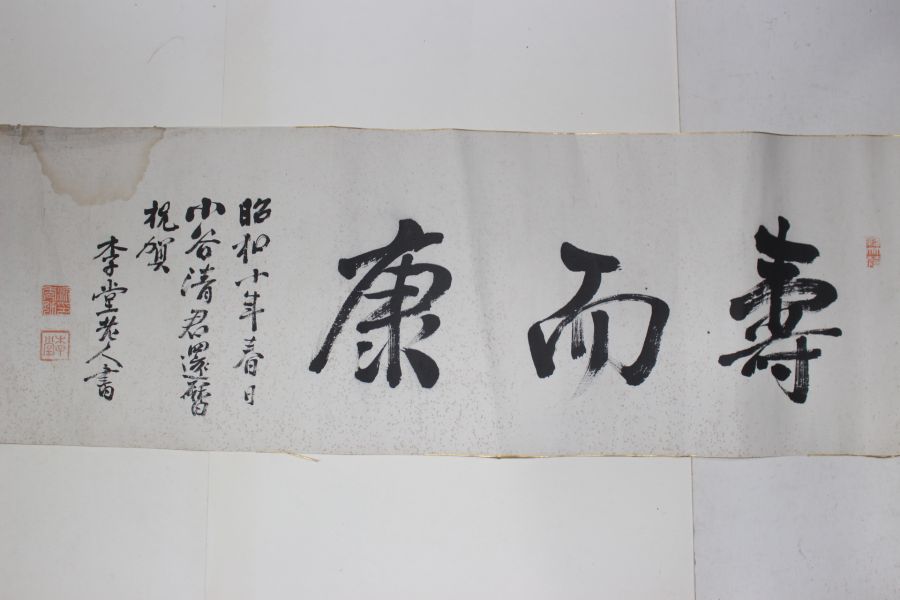 壽而康
昭和十年春日
小谷清君還曆
祝賀
李堂老人書